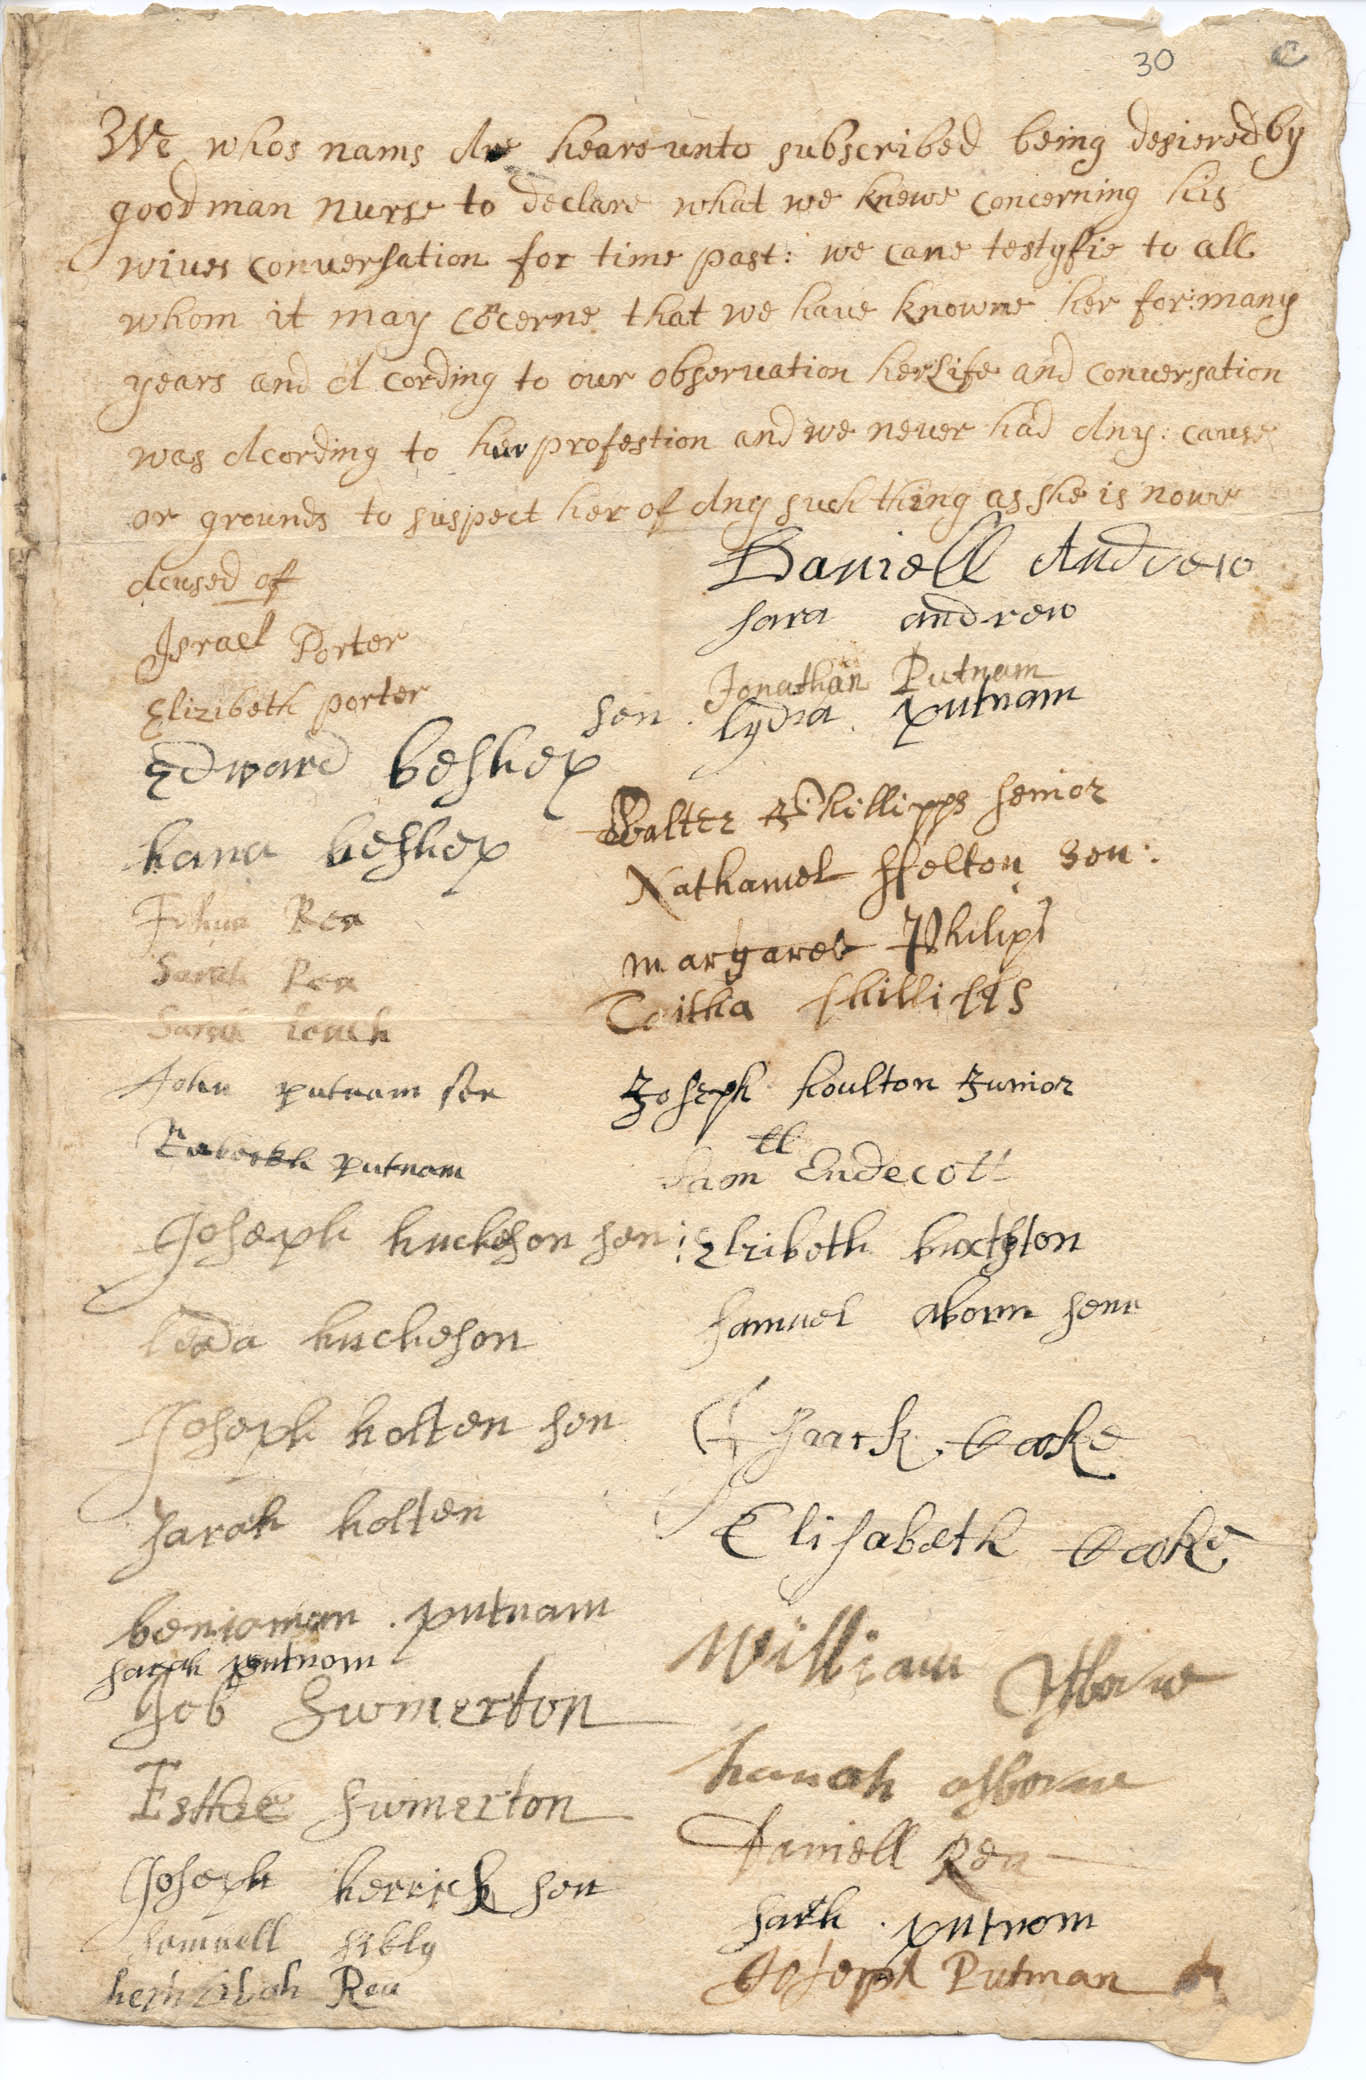 30 C
We whos nams Are heareunto subscribed being desiered by
goodman nurse to declare what we knewe concerning his
wives conversation for time past: we cane testyfie to all
whom it may cōcerne that we have knowne her for: many
years and A cording to our observation her Life and conversation
was Acording to hur profestion and we never had Any: cause
or grounds to suspect her of Any such thing as she is nowe
Acused of
Israel Porter
Elizibeth porter
Edward beshep sen
hana beshep
Joshua Rea
Sarah Rea
Sarah leach
John putnam sen
Rebeckah putnam
Joseph huckeson sen:
leda huckeson
Joseph holten sen
sarah holten
beniaman . putnam
sarah putnam
Job Swinerton
Esther Swinerton
Joseph herrick sen
samuell sibly
hephzibah Rea
Daniell Andrew
sara andrew
Jonathan Putnam
lydia putnam
Walter Phillipps senior
Nathaniel ffelton sen:
margaret Philips
Taitha phillipps
Joseph houlton Junior
Sam ll Endecott
Elzibeth buxtston
samuel aborn senr
Isaack Cooke
Elisabeth Cooke
William osborne
hanah osborne
Daniell Rea
sarh . putnam
Joseph Putman